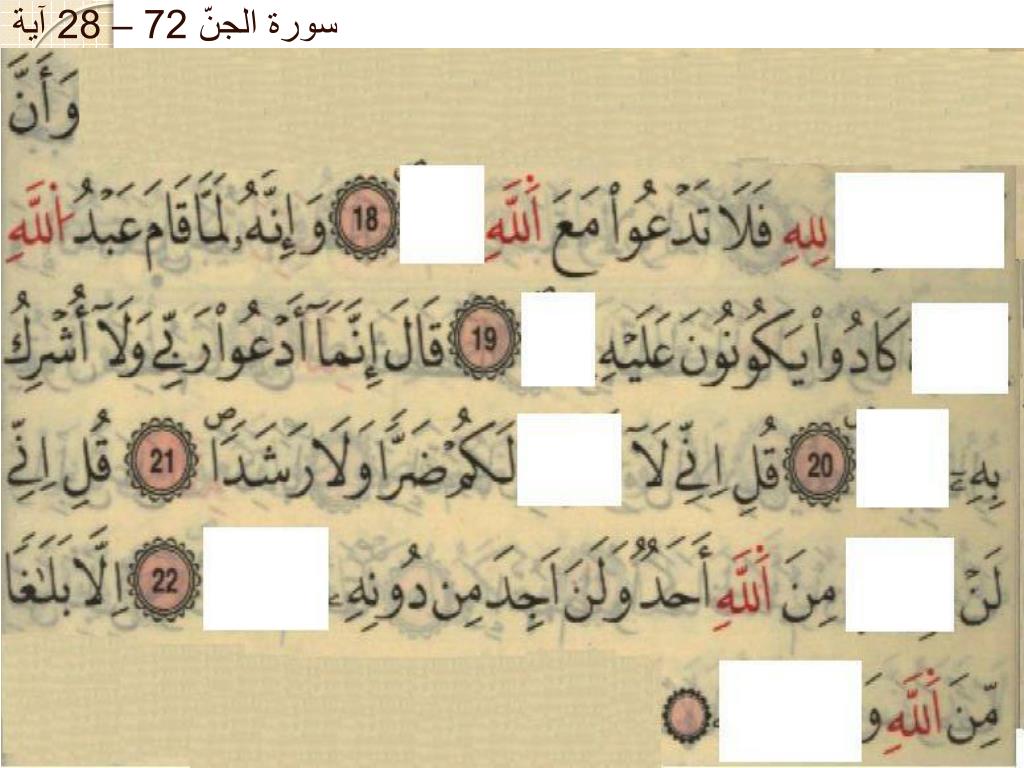 سورة الجنّ 72 – 28 آية
وَأَنَّ
لِلهِ فَلَا تَدْعُواْ مَعَ اَ۬للَّهِ 18 وَإِنَّهُۥ لَمَّا قَامَ عَبْدُ اُ۬للَّهِ
كَادُواْ يَكُونُونَ عَلَيْهِ 19 قَالَ إِنَّمَآ أَدْعُواْ رَبِّے وَلَآ أُشْرِكُ
بِهِۦٓ 20 قُلِ اِنِّے لَآ لَكُمْ ضَرّٗا وَلَا رَشَداٗۖ 21 قُلِ اِنِّے
لَنْ مِنَ اَ۬للَّهِ أَحَدٞ وَلَنَ اَجِدَ مِن دُونِهِۦ 22 اِلَّا بَلَٰغاٗ
مِّنَ اَ۬للَّهِ وَ